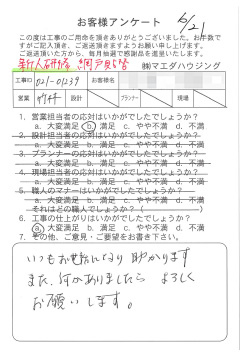 お客様アンケート
6/21
この度は工事のご用命を頂きありがとうございました。お手数で
すがご記入頂き、ご返送頂きますようお願い申し上げます。
ご返送頂いた方から、毎月抽選で感謝品を進呈いたします。
網戸張替 ㈱マエダハウジング
工事ID 021-0239 お客様名
営業 設計 プランナー 現場
1. 営業担当者の応対はいかがでしたでしょうか?
a. 大変満足 b. 満足 c. やや不満 d. 不満
2. 設計担当者の応対はいかがでしたでしょうか?
a. 大変満足 b. 満足 c. やや不満 d. 不満
3. プランナーの応対はいかがでしたでしょうか?
a. 大変満足 b. 満足 c. やや不満 d. 不満
4. 現場担当者の応対はいかがでしたでしょうか?
a. 大変満足 b. 満足 c. やや不満 d. 不満
5. 職人のマナーはいかがでしたでしょうか?
a. 大変満足 b. 満足 c. やや不満 d. 不満
それはどの職人でしたか?( )
6. 工事の仕上がりはいかがでしたでしょうか?
a. 大変満足 b. 満足 c. やや不満 d. 不満
7. その他、ご意見・ご要望をお書き下さい。
いつもお世話になり 助かります
また、何かありましたら よろしく
お願いします。